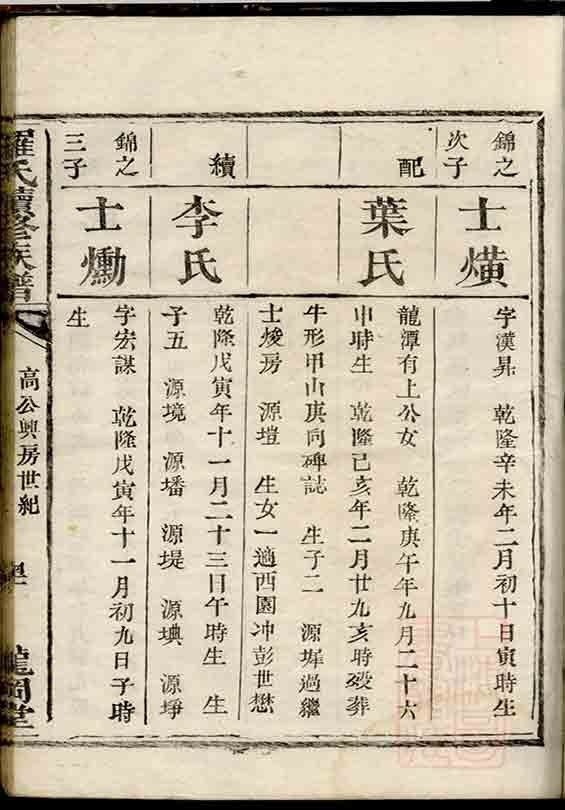 錦之
次子
士熿
字漢昇　乾隆辛未年二月初十日寅時生
配
葉氏
龍潭有上公女　乾隆庚午年九月二十六
申時生　乾隆己亥年二月廿九亥時歿葬
牛形甲山庚向碑誌　生子二　源墀過繼
士焌房　源塏　生女一適西園冲彭世懋
續
李氏
乾隆戊寅年十一月二十三日午時生　生
子五　源境　源墦　源堤　源㙉　源埩
錦之
三子
士勷
字宏謀　乾隆戊寅年十一月初九日子時
生
羅氏續修族譜
高公興房世紀